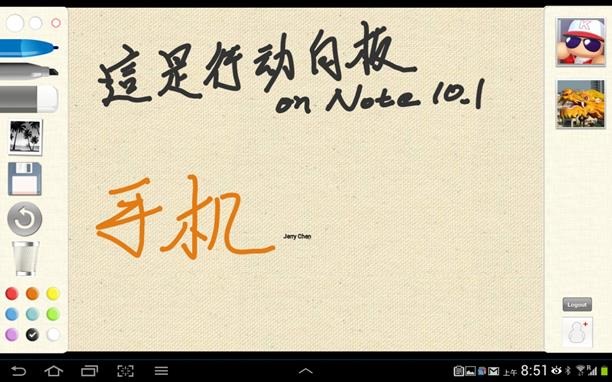 這是行动白板
on Note 10.1
手机
Jerry Chen
Logout
上午 8:51